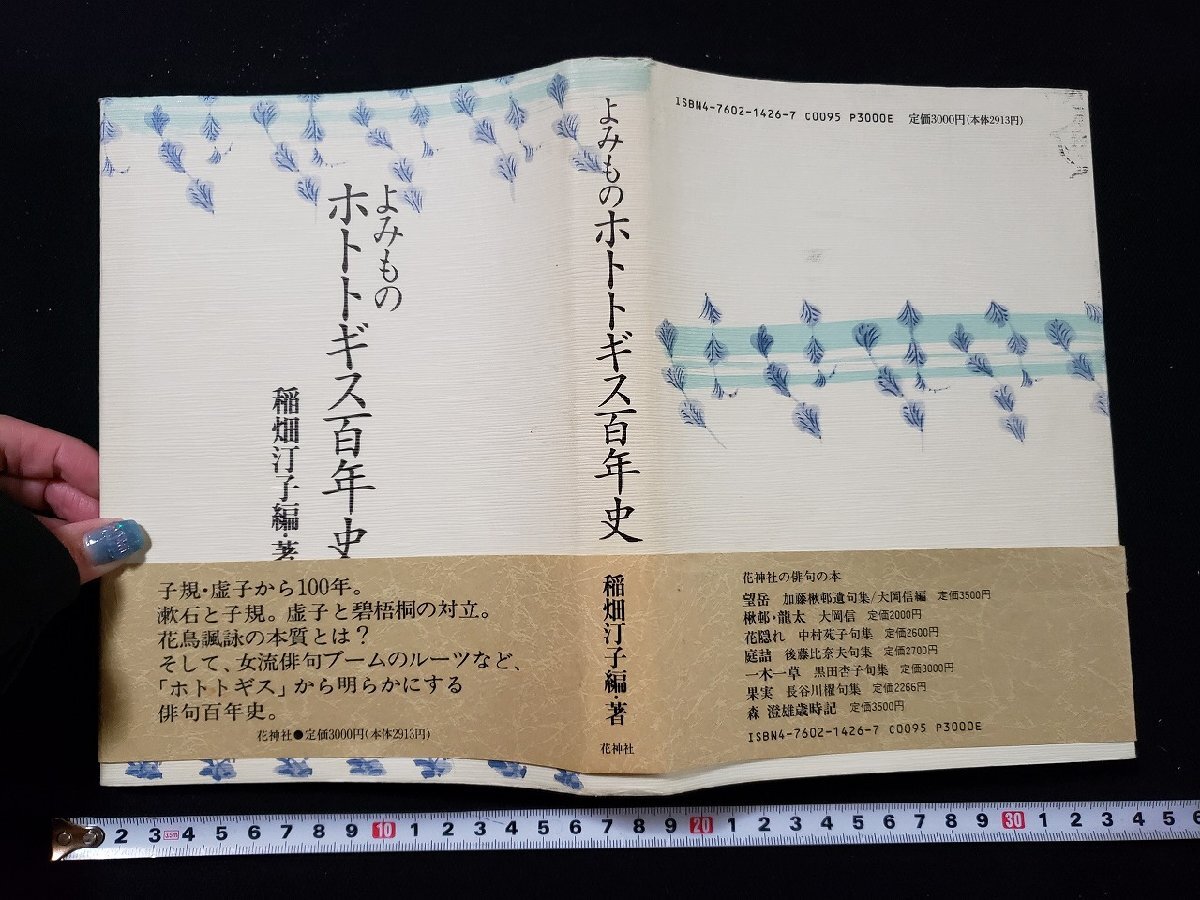 よみもの
ホトトギス百年史
稲畑汀子編・著
子規・虚子から100年。
漱石と子規。虚子と碧梧桐の対立。
花鳥諷詠の本質とは?
そして、女流俳句ブームのルーツなど、
「ホトトギス」から明らかにする
俳句百年史。
花神社●定価3000円(本体2913円)
よみものホトトギス百年史
稲畑汀子編・著
花神社
ISBN4-7602-1426-7 C0095 P3000E 定価3000円(本体2913円)
花神社の俳句の本
望岳 加藤楸邨遺句集/大岡信編 定価3500円
楸邨・龍太 大岡信 定価2000円
花隠れ 中村苑子句集 定価2600円
庭詰 後藤比奈夫句集 定価2700円
一木一草 黒田杏子句集 定価3000円
果実 長谷川櫂句集 定価2266円
森 澄雄歳時記 定価3500円
ISBN4-7602-1426-7 C0095 P3000E
2 3 3cm 4 5 6 7 8 9 10 1 2 3 4 5 6 7 8 9 20 1 2 3 4 5 6 7 8 9 30 1 2 3 4 5 6